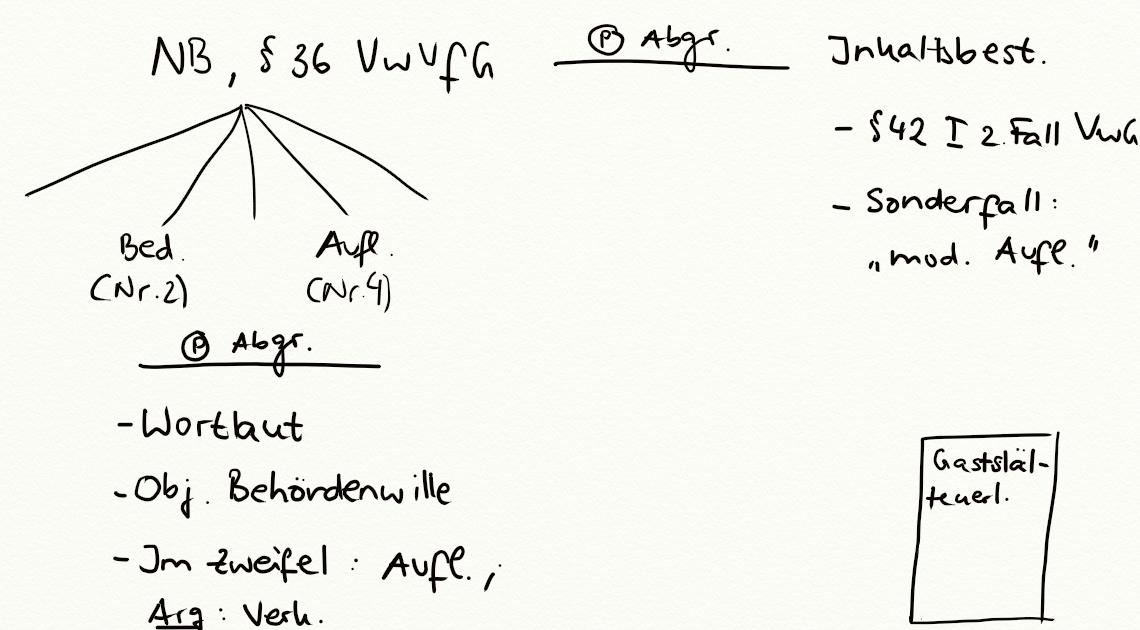 NB, § 36 VwVfG
Ⓟ Abgr.
Inhaltsbest.
- § 42 I 2. Fall VwG
- Sonderfall:
„mod. Aufl."
Bed.
(Nr. 2)
Aufl.
(Nr. 4)
Ⓟ Abgr.
- Wortlaut
- Obj. Behördenwille
- Im Zweifel: Aufl.,
Arg: Verh.
Gaststät-
tenerl.